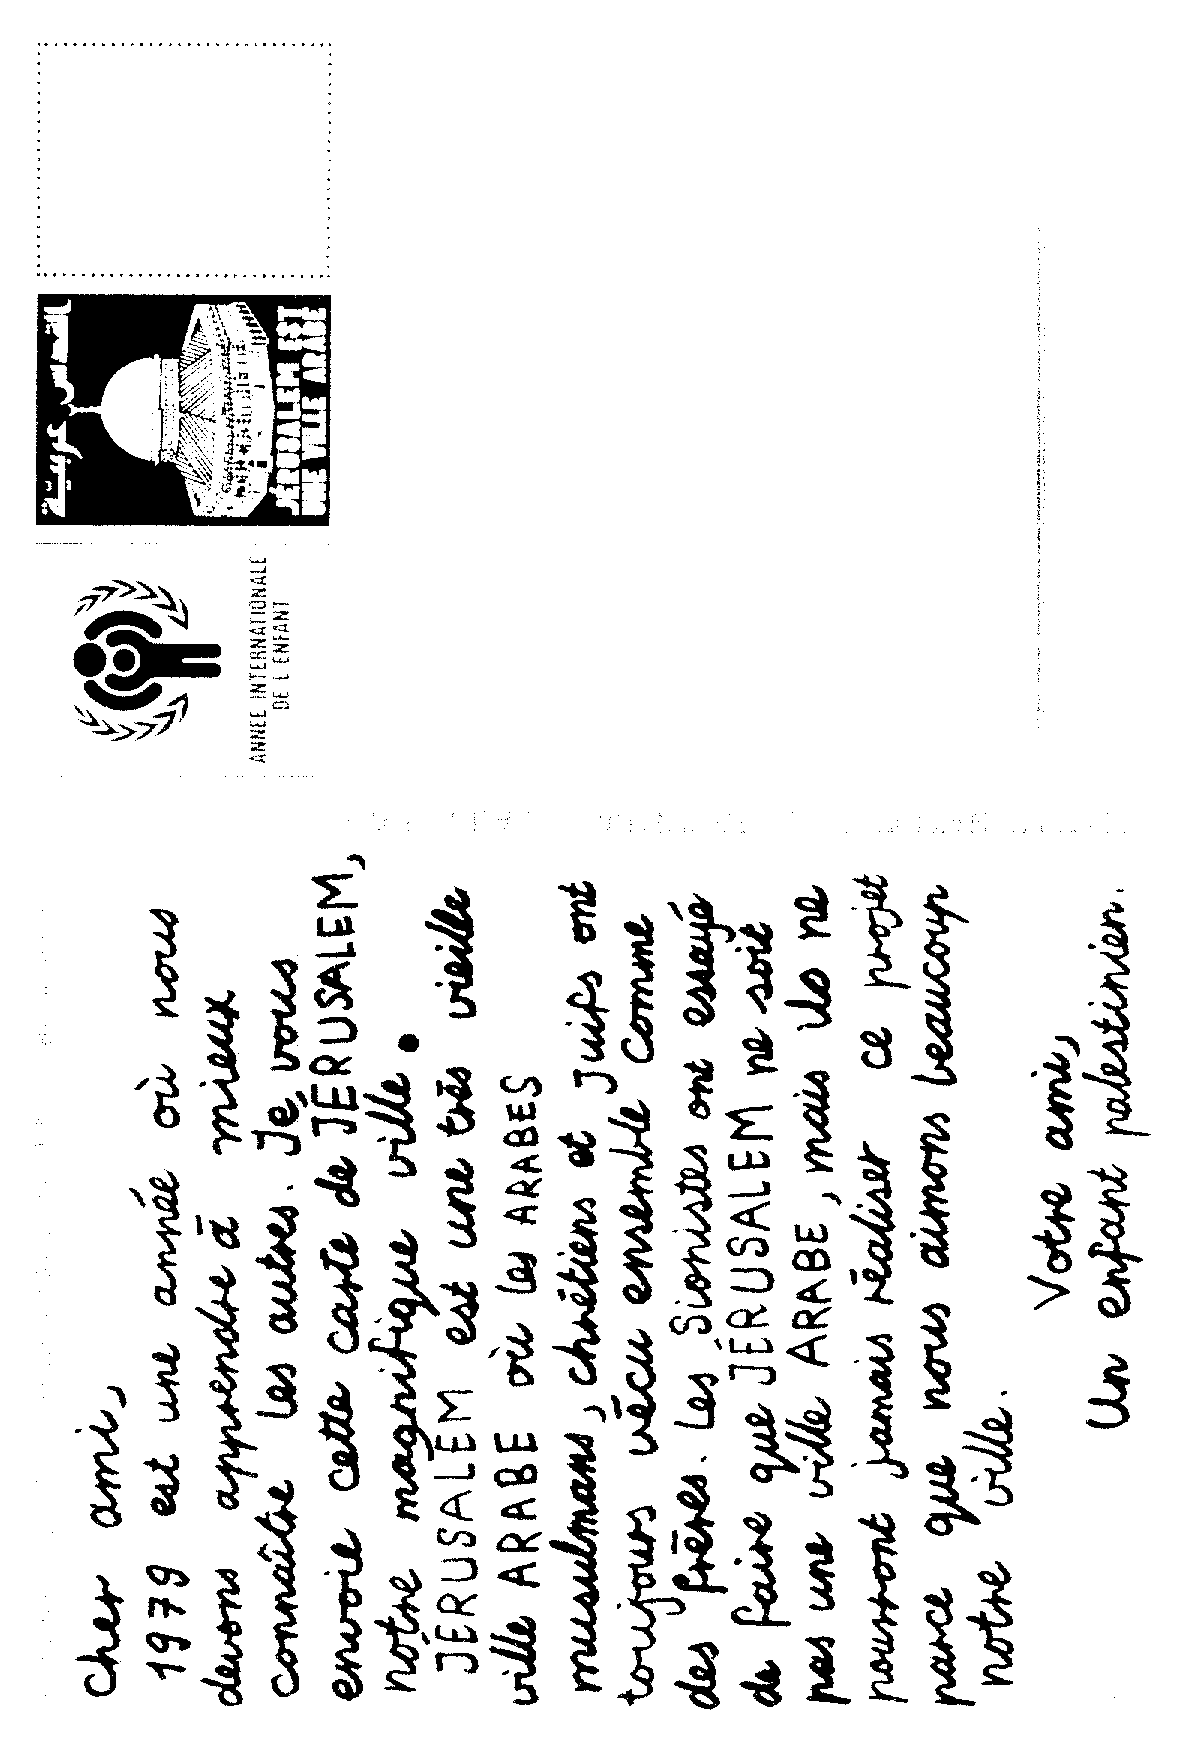 Cher ami,
1979 est une année où nous
devons apprendre à mieux
connaître les autres. Je vous
envoie cette carte de JÉRUSALEM,
notre magnifique ville.
JÉRUSALEM est une très vieille
ville ARABE où les ARABES
musulmans, chrétiens et Juifs ont
toujours vécu ensemble comme
des frères. Les Sionistes ont essayé
de faire que JÉRUSALEM ne soit
pas une ville ARABE, mais ils ne
pourront jamais réaliser ce projet
parce que nous aimons beaucoup
notre ville.
Votre ami,
Un enfant palestinien.
ANNEE INTERNATIONALE
DE L ENFANT
القدس عربيّة
JÉRUSALEM EST
UNE VILLE ARABE